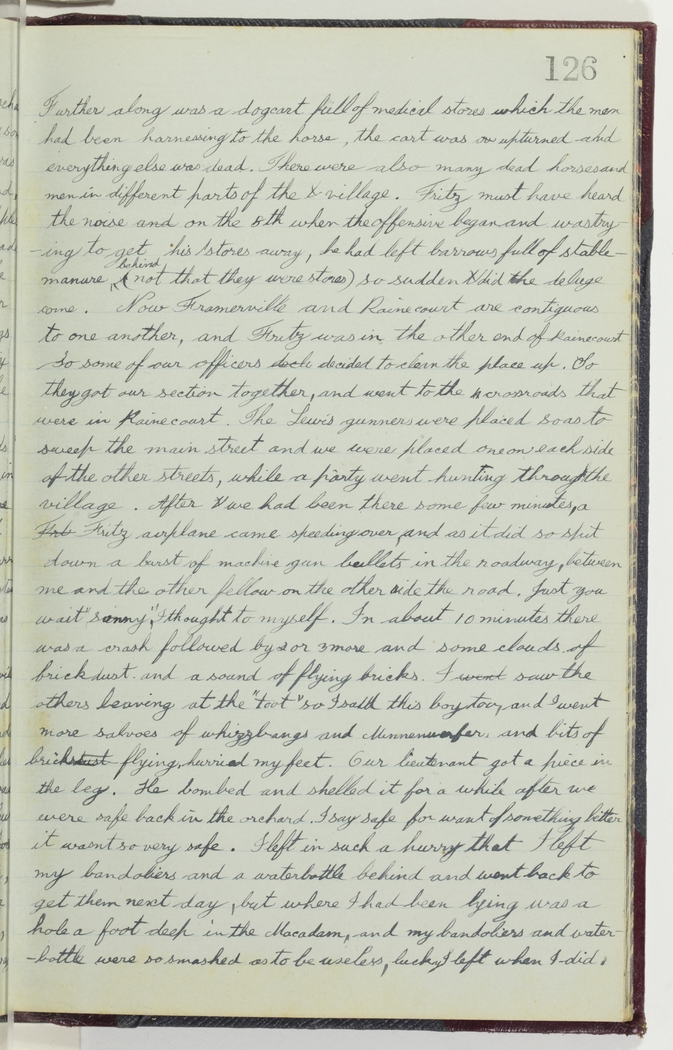 126
Further along was a dogcart full of medical stores which the men
had been harnessing to the horse, the cart was ov upturned and
everything else was dead. There were also many dead horses and
men in different parts of the X village. Fritz must have heard
the noise and on the 8th when the offensive began and was try-
-ing to get his stores away, he had left barrows full of stable-
behind
manure (not that they were stores) so sudden X did the deluge
come. Now Framerville and Rainecourt are contiguous
to one another, and Fritz was in the other end of Rainecourt
So some of our officers decided to clean the place up. So
they got our section together, and went to the 4 crossroads that
were in Rainecourt. The Lewis gunners were placed so as to
sweep the main street and we were placed one on each side
of the other streets, while a party went hunting through the
village. After X we had been there some few minutes, a
Fritz airplane came speeding over and as it did so spit
down a burst of machine gun bullets in the roadway, between
me and the other fellow on the other side the road, Just you
wait "sonny", I thought to myself. In about 10 minutes there
was a crash followed by 2 or 3 more and some clouds of
brick dust and a sound of flying bricks. I went saw the
others leaving at the "toot" so I saith this boy too, and I went
more salvoes of whizzbangs and Minnenwerfer, and bits of
bricks dust flying, hurried my feet. Our lieutenant got a piece in
the leg. He bombed and shelled it for a while after we
were safe back in the orchard. I say safe for want of something better
it wasnt so very safe. I left in such a hurry that I left
my bandoliers and a waterbottle behind and went back to
get them next day, but where I had been lying was a
hole a foot deep in the Macadam, and my bandoliers and water-
-bottle were so smashed as to be useless, lucky I left when I did.